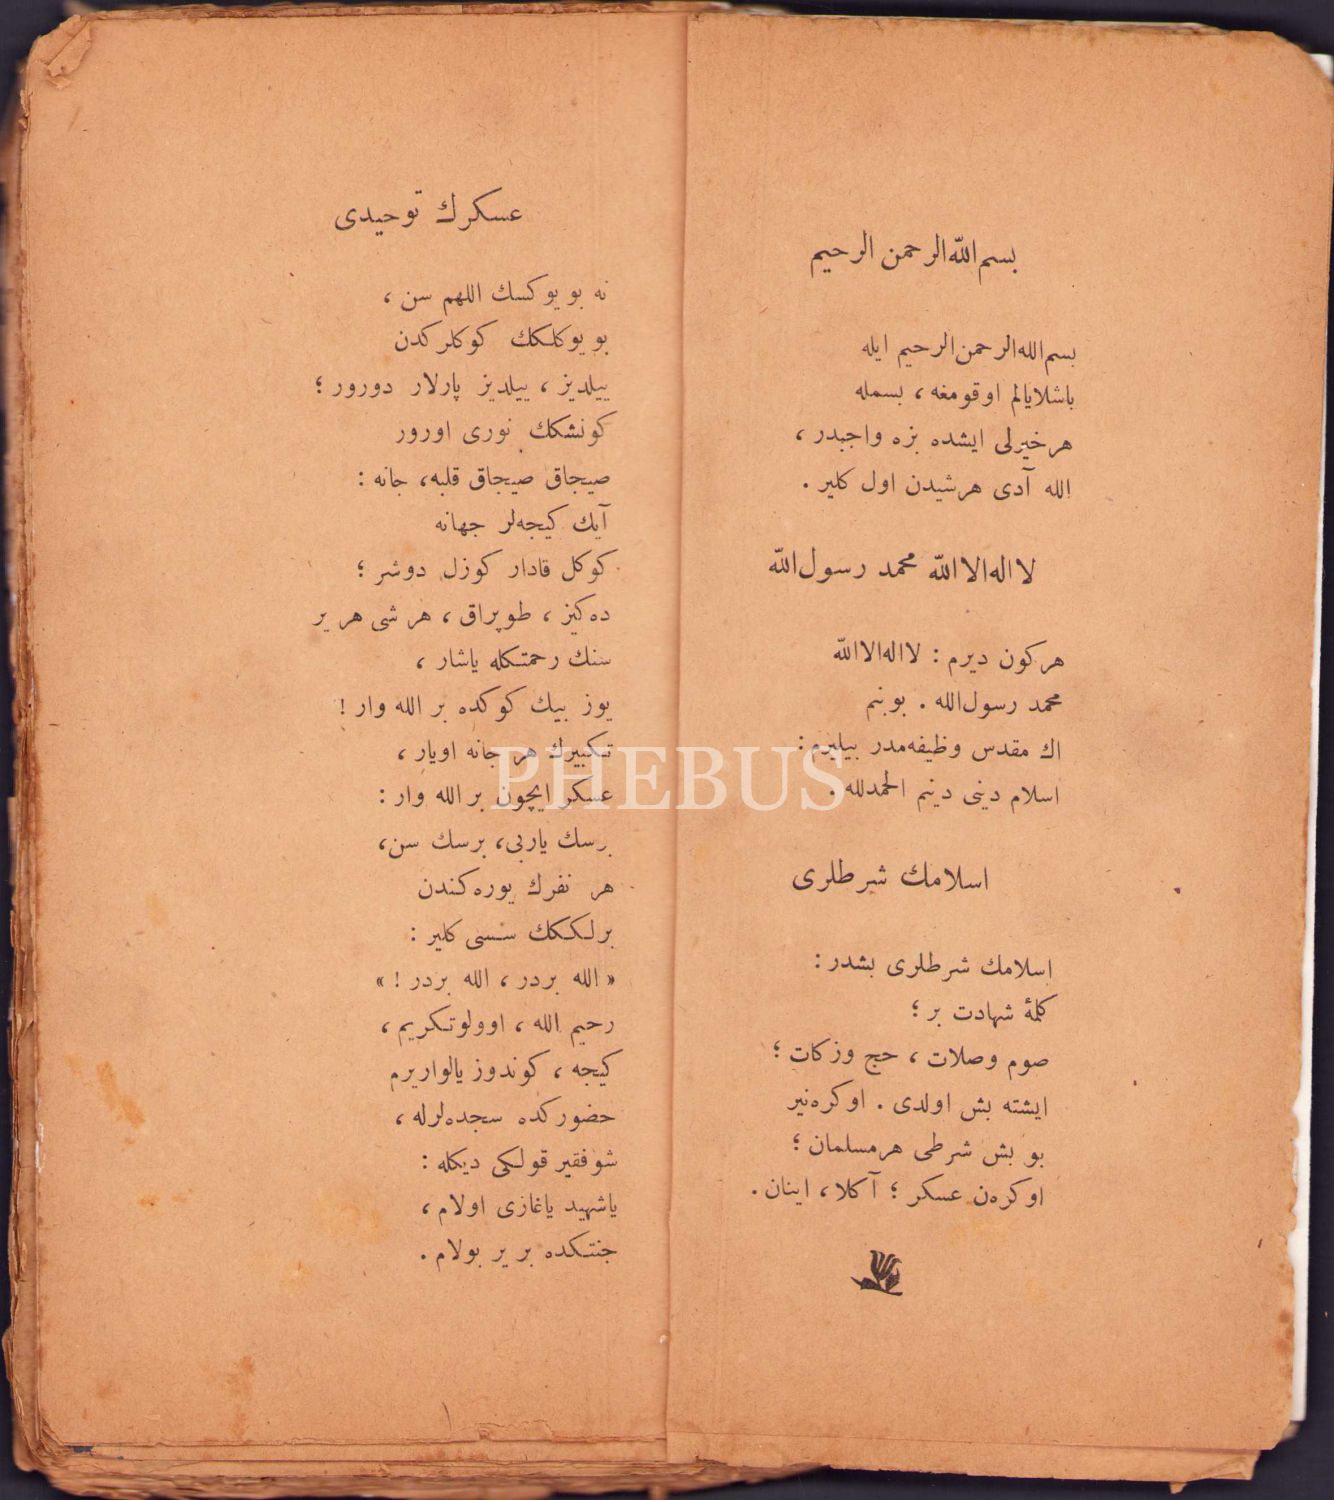 بسم‌اللّه‌الرحمن الرحیم
بسم‌الله‌الرحمن‌الرحیم ایله
باشلایالم اوقومغه ، بسمله
هر خیرلی ایشده بزه واجبدر ،
الله آدی هر شیدن اول کلیر .
لا اله الا اللّه محمد رسول‌اللّه
هر کون دیرم : لا اله الا اللّه
محمد رسول‌الله . بو بنم
اك مقدس وظیفه‌مدر بیلیرم :
اسلام دینی دینم الحمدلله .
اسلامك شرطلری
اسلامك شرطلری بشدر :
کلمهٔ شهادت بر ؛
صوم وصلات ، حج وزکات ؛
ایشته بش اولدی . اوکره‌نیر
بو بش شرطی هر مسلمان ؛
اوکره‌ن عسکر ؛ آکلا ، اینان .
عسکرك توحیدی
نه بو یوکسك اللهم سن ،
بو یوکلکك کوکلرکدن
ییلدیز ، ییلدیز پارلار دورور ؛
کونشکك نوری اورور
صیجاق صیجاق قلبه ، جانه :
آیك کیجه‌لر جهانه
کوکل قادار کوزل دوشر ؛
ده‌کیز ، طوپراق ، هر شی هر یر
سنك رحمتکله یاشار ،
یوز بیك کوکده بر الله وار !
تکبیرك هر جانه اویار ،
عسکر ایچون بر الله وار :
برسك یاربی ، برسك سن ،
هر نفرك یوره‌کندن
برلککك سسی کلیر :
« الله بردر ، الله بردر ! »
رحیم الله ، اوولو تکریم ،
کیجه ، کوندوز یالواریرم
حضورکده سجده‌لرله ،
شو فقیر قولکی دیکله :
یا شهید یا غازی اولام ،
جنتکده بر یر بولام .
PHEBUS